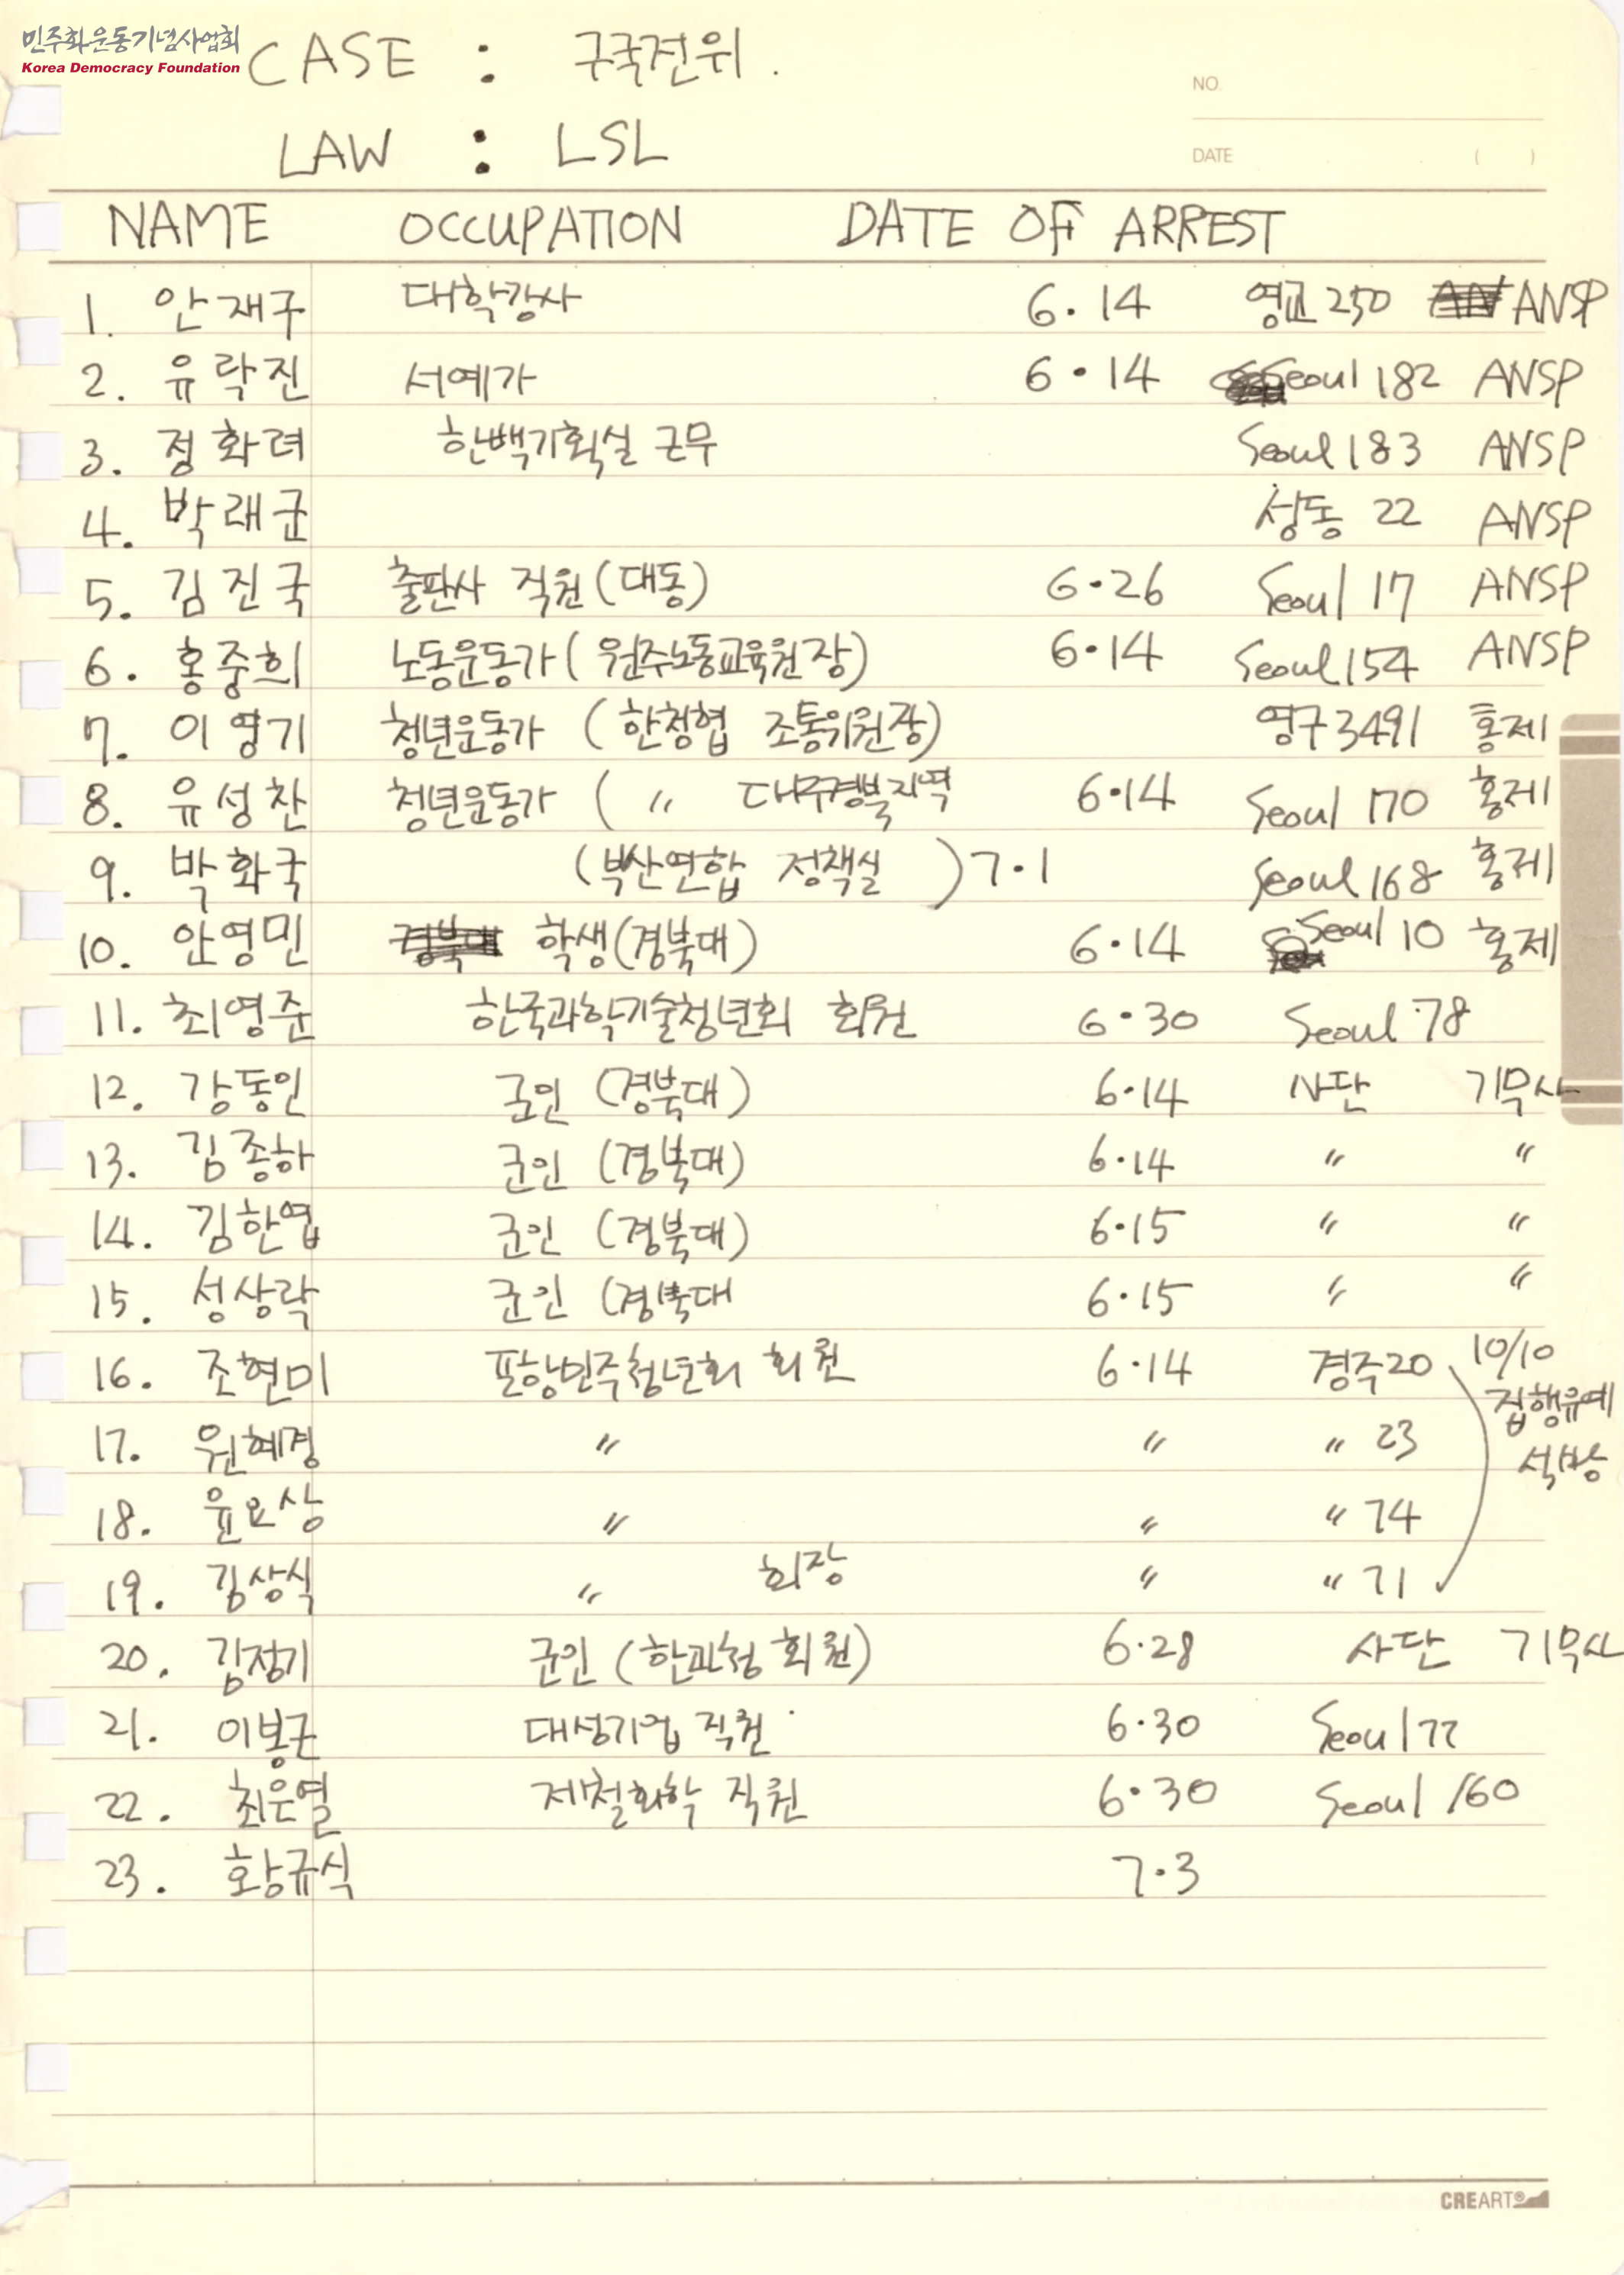 민주화운동기념사업회
Korea Democracy Foundation
CASE : 구국전위.
NO.
LAW : LSL
DATE ( )
NAME OCCUPATION DATE OF ARREST
1. 안재구 대학강사 6.14 영교 250 ANSP
2. 유락진 서예가 6.14 Seoul 182 ANSP
3. 정화려 한백기획실 근무 Seoul 183 ANSP
4. 박래군 성동 22 ANSP
5. 김진국 출판사 직원 (대동) 6.26 Seoul 17 ANSP
6. 홍중희 노동운동가 (원주노동교육원장) 6.14 Seoul 154 ANSP
7. 이영기 청년운동가 (한청협 조통위원장) 영구 3491 홍제
8. 유성찬 청년운동가 ( " 대구경북지역 6.14 Seoul 170 홍제
9. 박화국 (부산연합 정책실 ) 7.1 Seoul 168 홍제
10. 안영민 경북대 학생(경북대) 6.14 Seoul 10 홍제
11. 최영준 한국과학기술청년회 회원 6.30 Seoul 78
12. 강동인 군인 (경북대) 6.14 사단 기무사
13. 김종하 군인 (경북대) 6.14 " "
14. 김한엽 군인 (경북대) 6.15 " "
15. 성상락 군인 (경북대 6.15 " "
16. 조현미 포항민주청년회 회원 6.14 경주 20 10/10
집행유예
17. 원혜경 " " " 23
석방
18. 윤요상 " " " 74
19. 김상식 " 회장 " " 71
20. 김정기 군인 (한과청 회원) 6.28 사단 기무사
21. 이봉근 대성기업 직원 6.30 Seoul 77
22. 최운열 제철화학 직원 6.30 Seoul 160
23. 황규식 7.3
CREART®